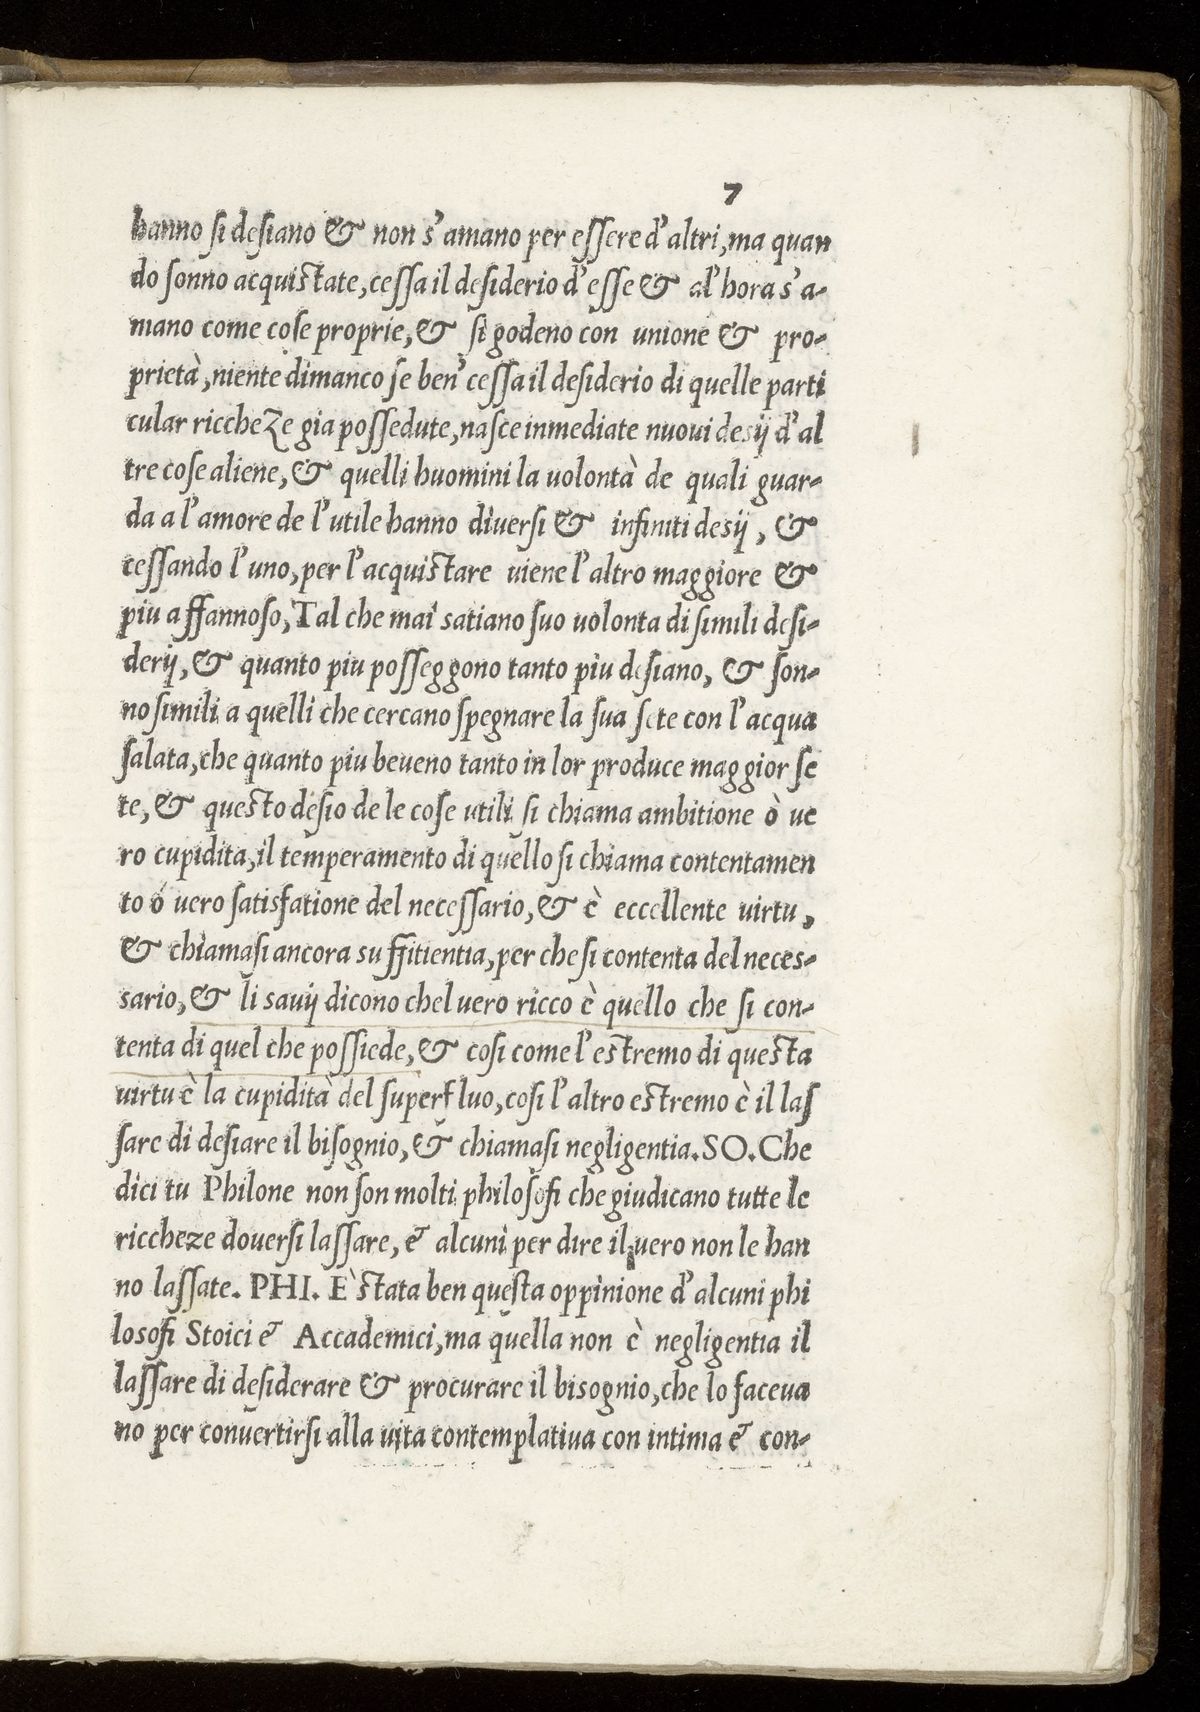 7
hanno si desiano & non s'amano per essere d'altri, ma quan
do sonno acquistate, cessa il desiderio d'esse & al'hora s'a-
mano come cose proprie, & si godeno con unione & pro-
prietà, niente dimanco se ben' cessa il desiderio di quelle parti
cular riccheze gia possedute, nasce inmediate nuovi desij d'al
tre cose aliene, & quelli huomini la uolontà de quali guar-
da a l'amore de l'utile hanno diversi & infiniti desij, &
cessando l'uno, per l'acquistare viene l'altro maggiore &
piu affannoso, Tal che mai satiano suo uolonta di simili desi-
derij, & quanto piu posseggono tanto piu desiano, & son-
no simili a quelli che cercano spegnare la sua sete con l'acqua
salata, che quanto piu beveno tanto in lor produce maggior se
te, & questo desio de le cose utili si chiama ambitione ò ue
ro cupidita, il temperamento di quello si chiama contentamen
to ò vero satisfatione del necessario, & è eccellente virtu,
& chiamasi ancora suffitientia, per che si contenta del neces-
sario, & li savij dicono chel vero ricco è quello che si con-
tenta di quel che possiede, & cosi come l'estremo di questa
virtu è la cupidità del superfluo, cosi l'altro estremo è il las
sare di desiare il bisognio, & chiamasi negligentia. SO. Che
dici tu Philone non son molti philosofi che giudicano tutte le
riccheze doversi lassare, & alcuni per dire il vero non le han
no lassate. PHI. È stata ben questa oppinione d'alcuni phi
losofi Stoici & Accademici, ma quella non è negligentia il
lassare di desiderare & procurare il bisognio, che lo faceva
no per convertirsi alla vita contemplativa con intima & con-